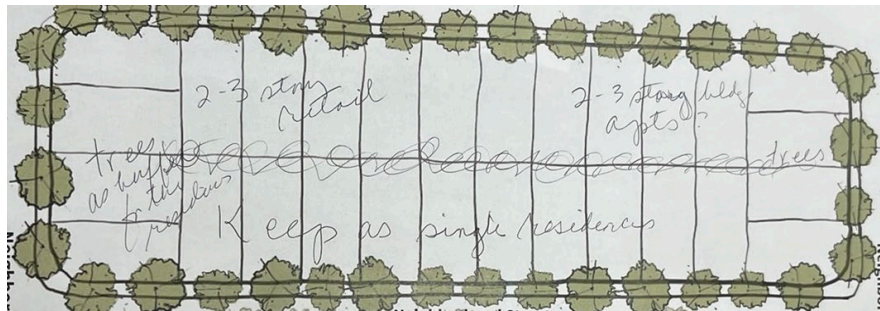 2-3 story
retail
2-3 story bldg
apts?
trees
as buffer
for the
residences
trees
Keep as single residences